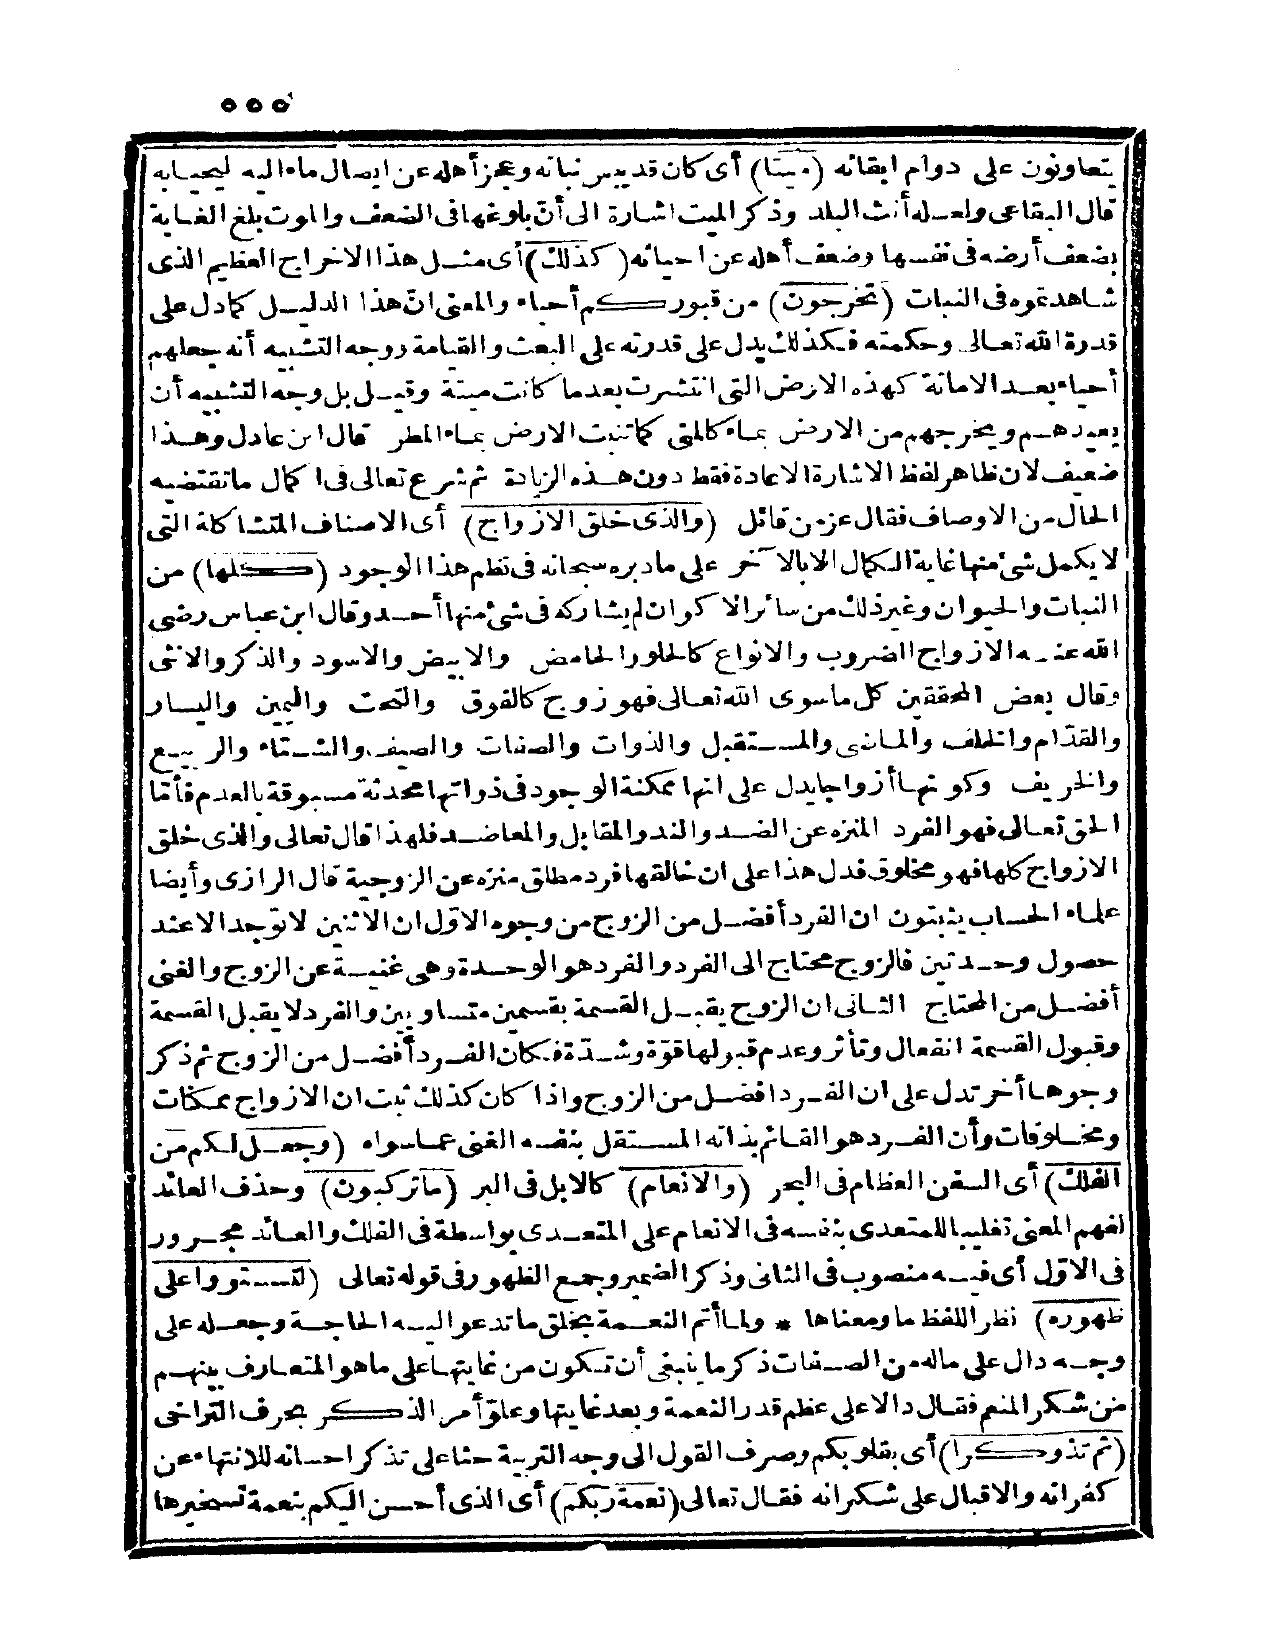 ٥٥٥
يتعاونون على دوام ابقائه (ميتا) أى كان قديبس نباته وعجز أهله عن ايصال ماء اليه ليحيا به
قال البقاعى ولعله أنث البلد وذكر الميت اشارة الى أن بلوغها فى الضعف والموت بلغ الغاية
بضعف أرضه فى نفسها وضعف أهله عن احيائه (كذلك) أى مثل هذا الاخراج العظيم الذى
شاهدتموه فى النبات (تخرجون) من قبوركم أحياء والمعنى ان هذا الدليل كما دل على
قدرة الله تعالى وحكمته فكذلك يدل على قدرته على البعث والقيامة ووجه التشبيه أنه يجعلهم
أحياء بعد الاماتة كهذه الارض التى انتشرت بعدما كانت ميتة وقيل بل وجه التشبيه أن
يعيدهم ويخرجهم من الارض بماء كالمنى كما تنبت الارض بماء المطر قال ابن عادل وهذا
ضعيف لان ظاهر لفظ الاشارة الاعادة فقط دون هذه الزيادة ثم شرع تعالى فى اكمال ما تقتضيه
الحال من الاوصاف فقال عز من قائل (والذى خلق الازواج) أى الاصناف المتشاكلة التى
لا يكمل شئ منها غاية الكمال الا بالآخر على ما دبره سبحانه فى نظم هذا الوجود (كلها) من
النبات والحيوان وغير ذلك من سائر الاكوان لم يشاركه فى شئ منها أحد وقال ابن عباس رضى
الله عنه الازواج الضروب والانواع كالحلو والحامض والابيض والاسود والذكر والانثى
وقال بعض المحققين كل ما سوى الله تعالى فهو زوج كالفوق والتحت واليمين واليسار
والقدّام والخلف والماضى والمستقبل والذوات والصفات والصيف والشتاء والربيع
والخريف وكونها أزواجا يدل على انها ممكنة الوجود فى ذواتها محدثة مسبوقة بالعدم فأمّا
الحق تعالى فهو الفرد المنزه عن الضد والند والمقابل والمعاضد فلهذا قال تعالى والذى خلق
الازواج كلها فهو مخلوق فدل هذا على ان خالقها فرد مطلق منزه عن الزوجية قال الرازى وأيضا
علماء الحساب يثبتون ان الفرد أفضل من الزوج من وجوه الاوّل ان الاثنين لا توجد الا عند
حصول وحدتين فالزوج محتاج الى الفرد والفرد هو الوحدة وهى غنية عن الزوج والغنى
أفضل من المحتاج الثانى ان الزوج يقبل القسمة بقسمين متساويين والفرد لا يقبل القسمة
وقبول القسمة انفعال وتأثر وعدم قبولها قوّة وشدّة فكان الفرد أفضل من الزوج ثم ذكر
وجوها أخر تدل على ان الفرد افضل من الزوج واذا كان كذلك ثبت ان الازواج ممكنات
ومخلوقات وأن الفرد هو القائم بذاته المستقل بنفسه الغنى عما سواه (وجعل لكم من
الفلك) أى السفن العظام فى البحر (والانعام) كالابل فى البر (ما تركبون) وحذف العائد
لفهم المعنى تغليبا للمتعدى بنفسه فى الانعام على المتعدى بواسطة فى الفلك والعائد مجرور
فى الاوّل أى فيه منصوب فى الثانى وذكر الضمير وجمع الظهور فى قوله تعالى (لتستووا على
ظهوره) نظر اللفظ ما ومعناها * ولما أتم النعمة بخلق ما تدعو اليه الحاجة وجعله على
وجه دال على ماله من الصفات ذكر ما ينبغى أن تكون من غايتها على ما هو المتعارف بينهم
من شكر المنعم فقال دالا على عظم قدر النعمة وبعد غايتها وعلوّ أمر الذكر بحرف التراخى
(ثم تذكروا) أى بقلوبكم وصرف القول الى وجه التربية حثا على تذكر احسانه للانتهاء عن
كفرانه والاقبال على شكرانه فقال تعالى (نعمة ربكم) أى الذى أحسن اليكم بنعمة تسخيرها